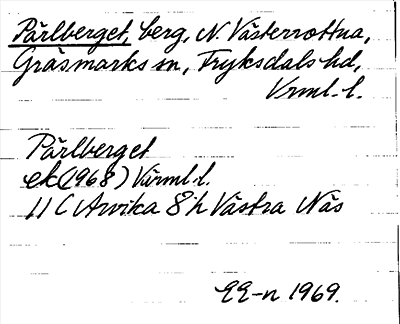 Pärlberget, berg, N. Västerrottna,
Gräsmarks sn, Fryksdals hd,
Vrml. l.
Pärlberget
ek (1968) Värml. l.
11 C Arvika 8 h Västra Näs
EE-n 1969.